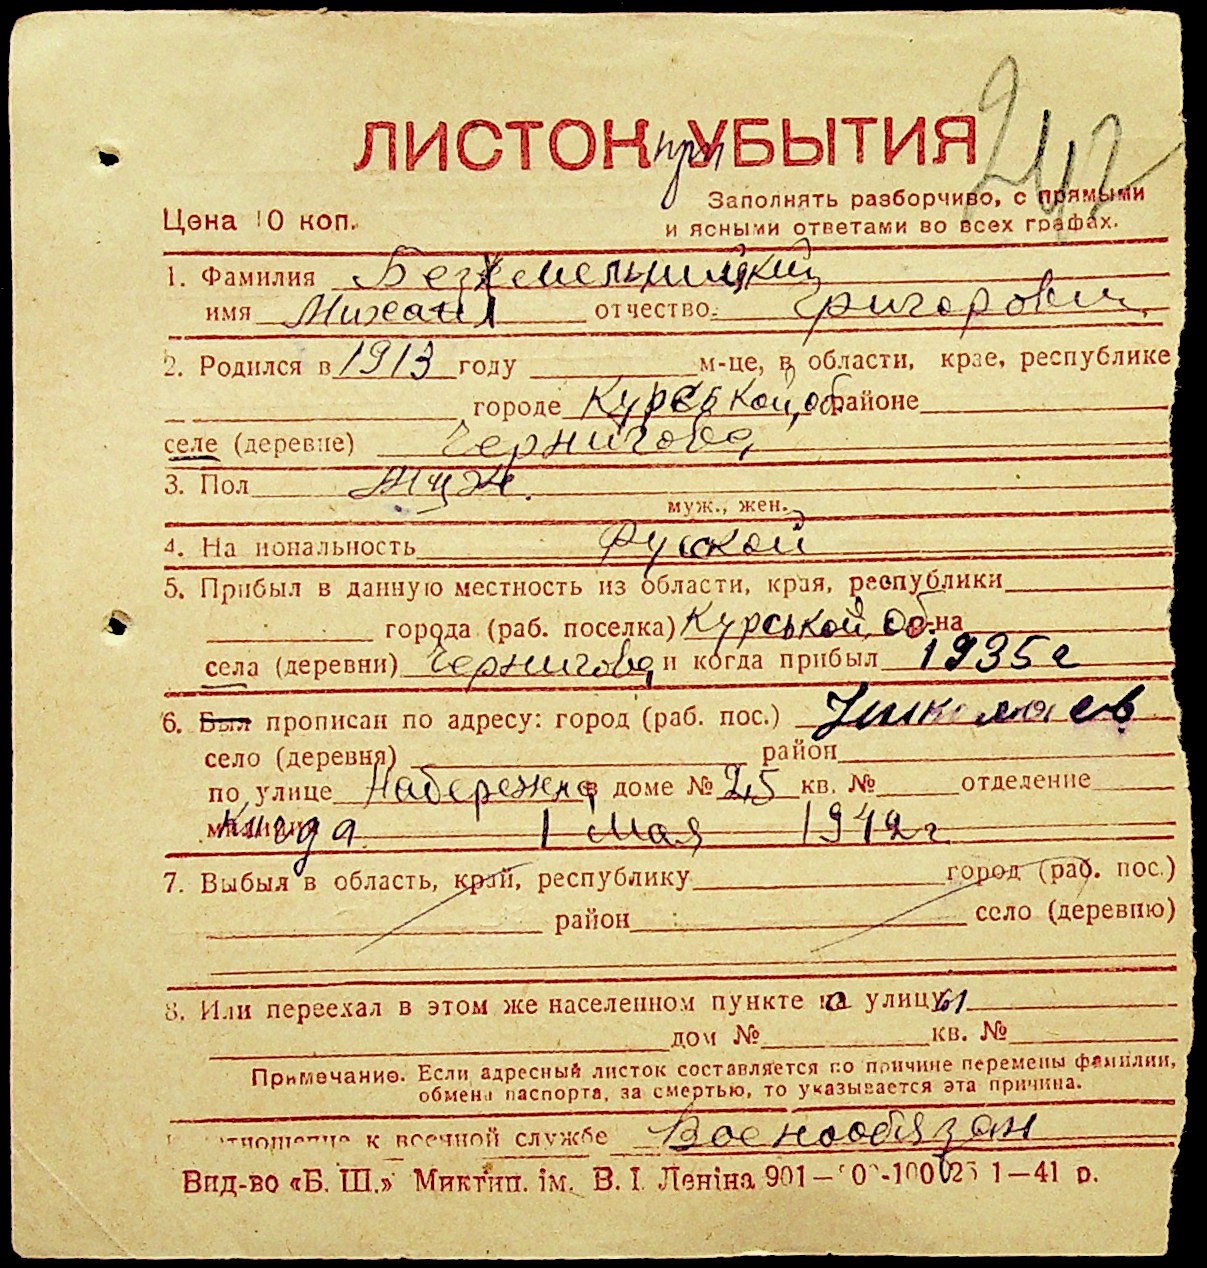 ЛИСТОК при УБЫТИЯ
242
Заполнять разборчиво, с прямыми
Цена 10 коп. и ясными ответами во всех графах.
1. Фамилия Безземельницкий
имя Михаил отчество Григорович
2. Родился в 1913 году м-це, в области, крае, республике
городе Курской об. районе
селе (деревне) Чернигова
3. Пол муж.
муж., жен.
4. Национальность Руской
5. Прибыл в данную местность из области, края, республики
города (раб. поселка) Курськой об-на
села (деревни) Чернигова и когда прибыл 1935 г
6. Был прописан по адресу: город (раб. пос.) Николаев
село (деревня) район
по улице Набережна в доме № 25 кв. № отделение
милиции Когда 1 Мая 1942 г
7. Выбыл в область, край, республику город (раб. пос.)
район село (деревню)
8. Или переехал в этом же населенном пункте на улицу
дом № кв. №
Примечание. Если адресный листок составляется по причине перемены фамилии,
обмена паспорта, за смертью, то указывается эта причина.
отношение к военной службе Военообязан
Вид-во «Б. Ш.» Миктип. ім. В. І. Леніна 901— 1—41 р.